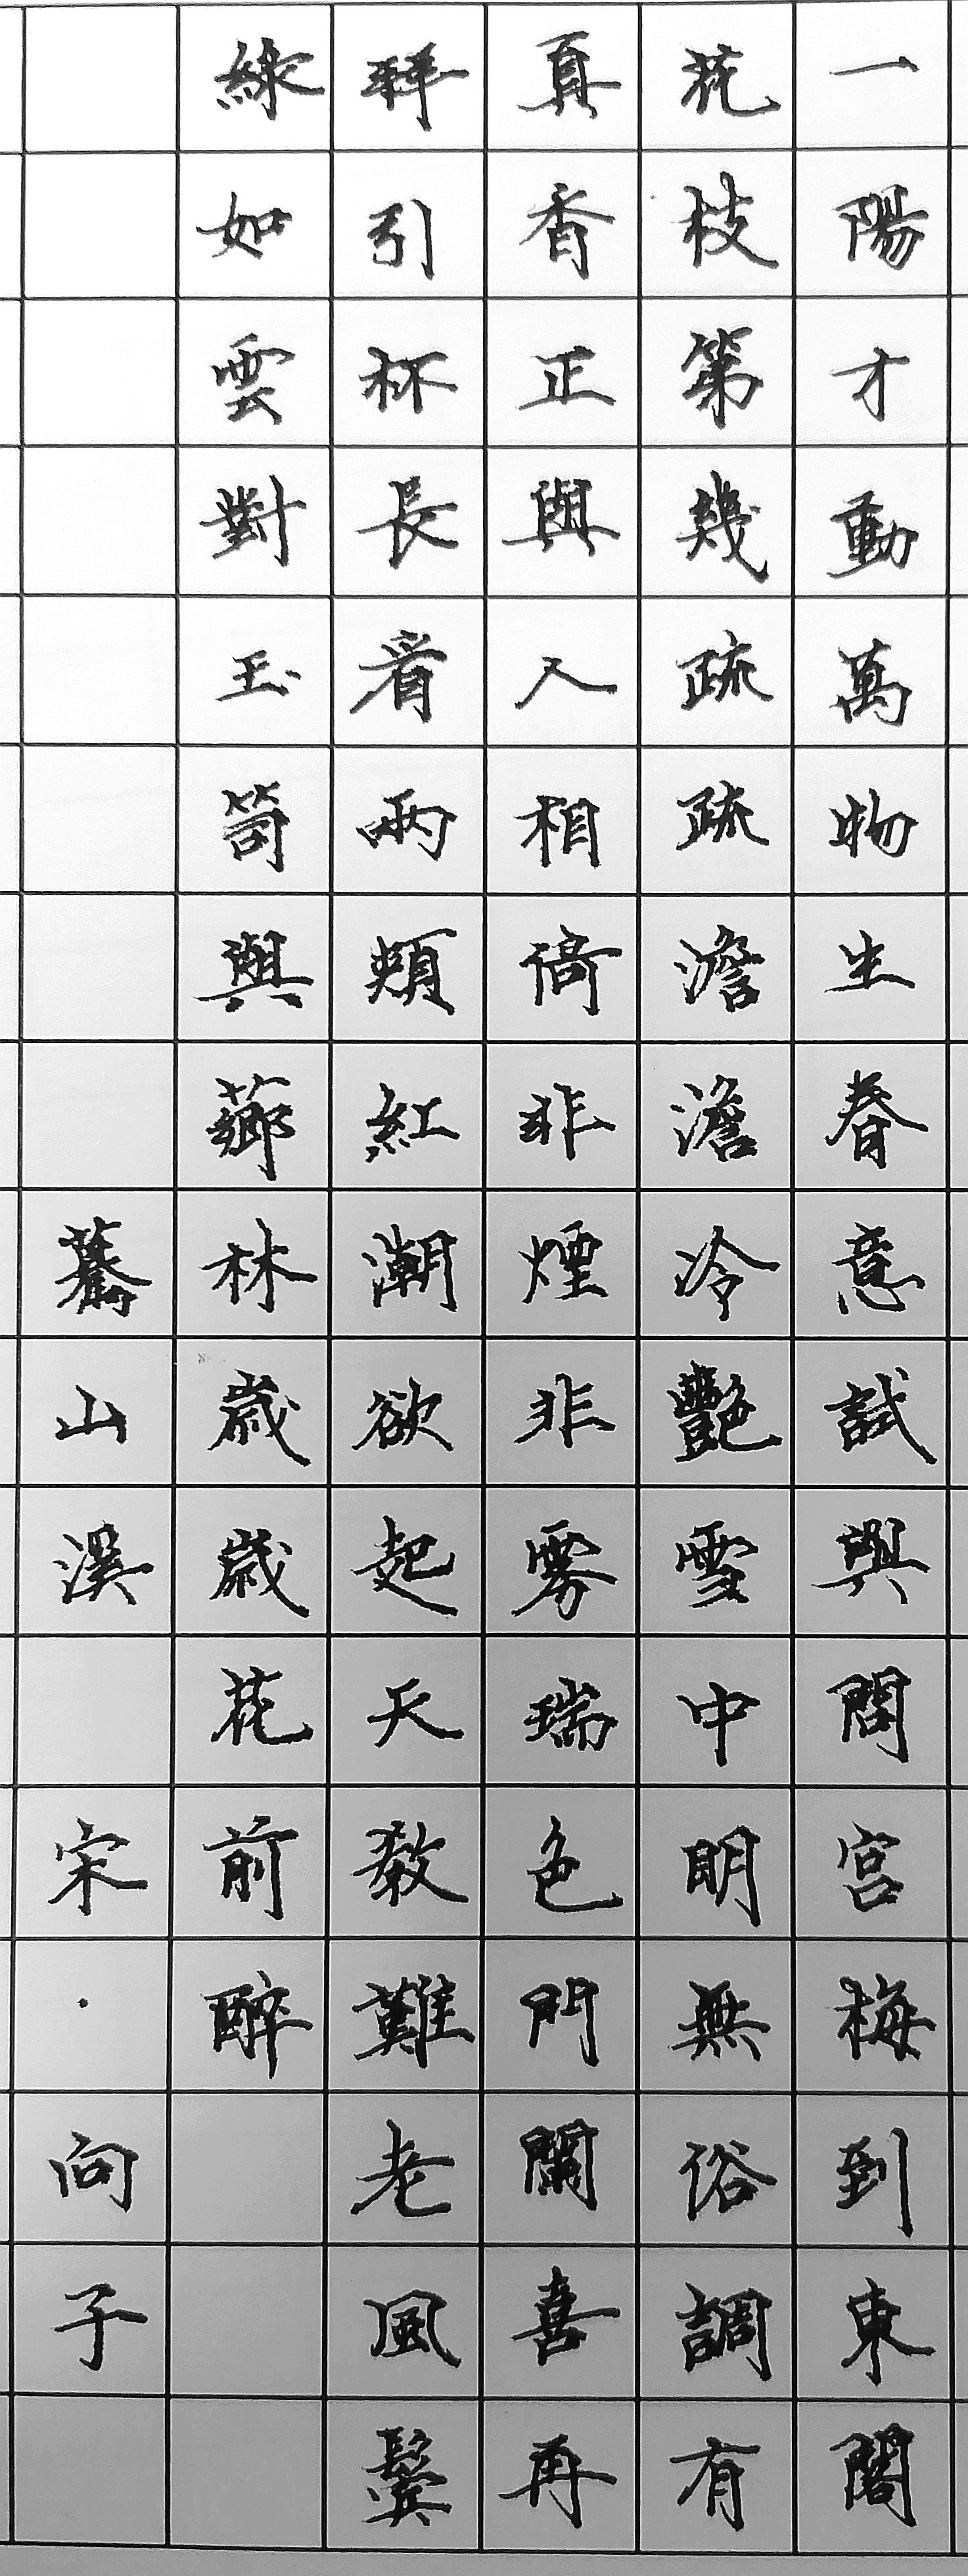 一陽才動萬物生春意試與問宮梅到東閣
花枝第幾疏疏澹澹冷艷雪中明無俗調有
真香正與人相倚非煙非霧瑞色門闌喜再
拜引杯長看兩頰紅潮欲起天教難老風鬢
綠如雲對玉筍與薌林歲歲花前醉
驀山溪 宋·向子